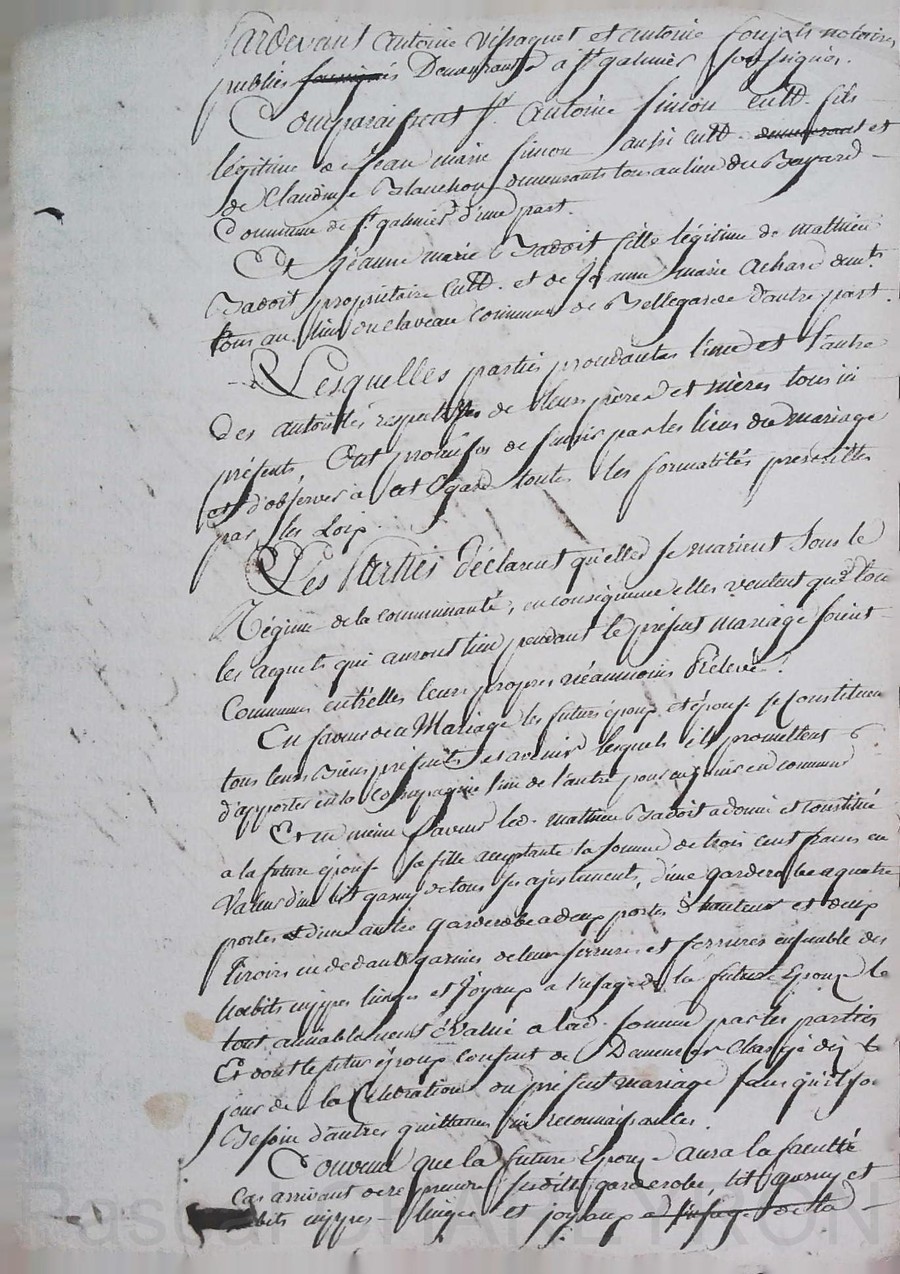 Pardevant Antoine Vissaguet et antoine foujols notaires
publics soussignés Demeurants a st galmier soussignés.
Comparaissent sr. Antoine Simon cultr. fils
légitime de Jean marie Simon aussi cultr. demeurant et
de Claudine Blanchon demeurants tous au lieu du Bayard
Commune de st. galmier d'une part.
Et jeanne marie Badoit fille légitime de mathieu
Badoit propriétaire cultr. et de jeanne marie Achard demts.
tous au lieu du claveau commune de Bellegarde d'autre part.
Lesquelles parties procedantes l'une et l'autre
des autorités respectives de leurs pères et mères tous ici
présents, Ont promis de s'unir par les liens du mariage
et d'observer a cet Egard toutes les formalités prescrittes
par les Loix.
Les Parties déclarent qu'elles se marient sous le
Régime de la communauté, en conséquence elles veulent que tous
les acquets qui auront lieu pendant le présent mariage soient
Communs entr'elles leurs propres néanmoins Prélevés.
En faveur de ce Mariage les futurs époux et épouse se constituent
tous leurs Biens présents et avenir lesquels ils promettent
d'apporter en la Compagnie l'un de l'autre pour en jouir en commun
Et en même faveur led. mathieu Badoit a donné et constitué
a la future épouse sa fille acceptante la somme de trois cent francs en
Valeur d'un lit garny de tous ses ajustements, d'une garderobe a quatre
portes et d'une autre garderobe a deux portes d'hauteur et deux
tiroirs en dedans garnies de leurs serrures et ferrures ensemble des
habits nippes linges et Joyaux a l'usage de la future Epouse le
tout amiablement évalué a lad. somme par les parties
Et dont le futur époux consent de Demeurer Chargé dez le
jour de la Celebration du présent mariage sans qu'il soi
Besoin d'autres quittances ni reconnaissances.
Convenu que la future Epouse aura la faculté
Cas arrivant de reprendre susdits garderobe, lit garny et
habits nippes linges et joyaux a l'usage de la
Pascal CHALEYRON